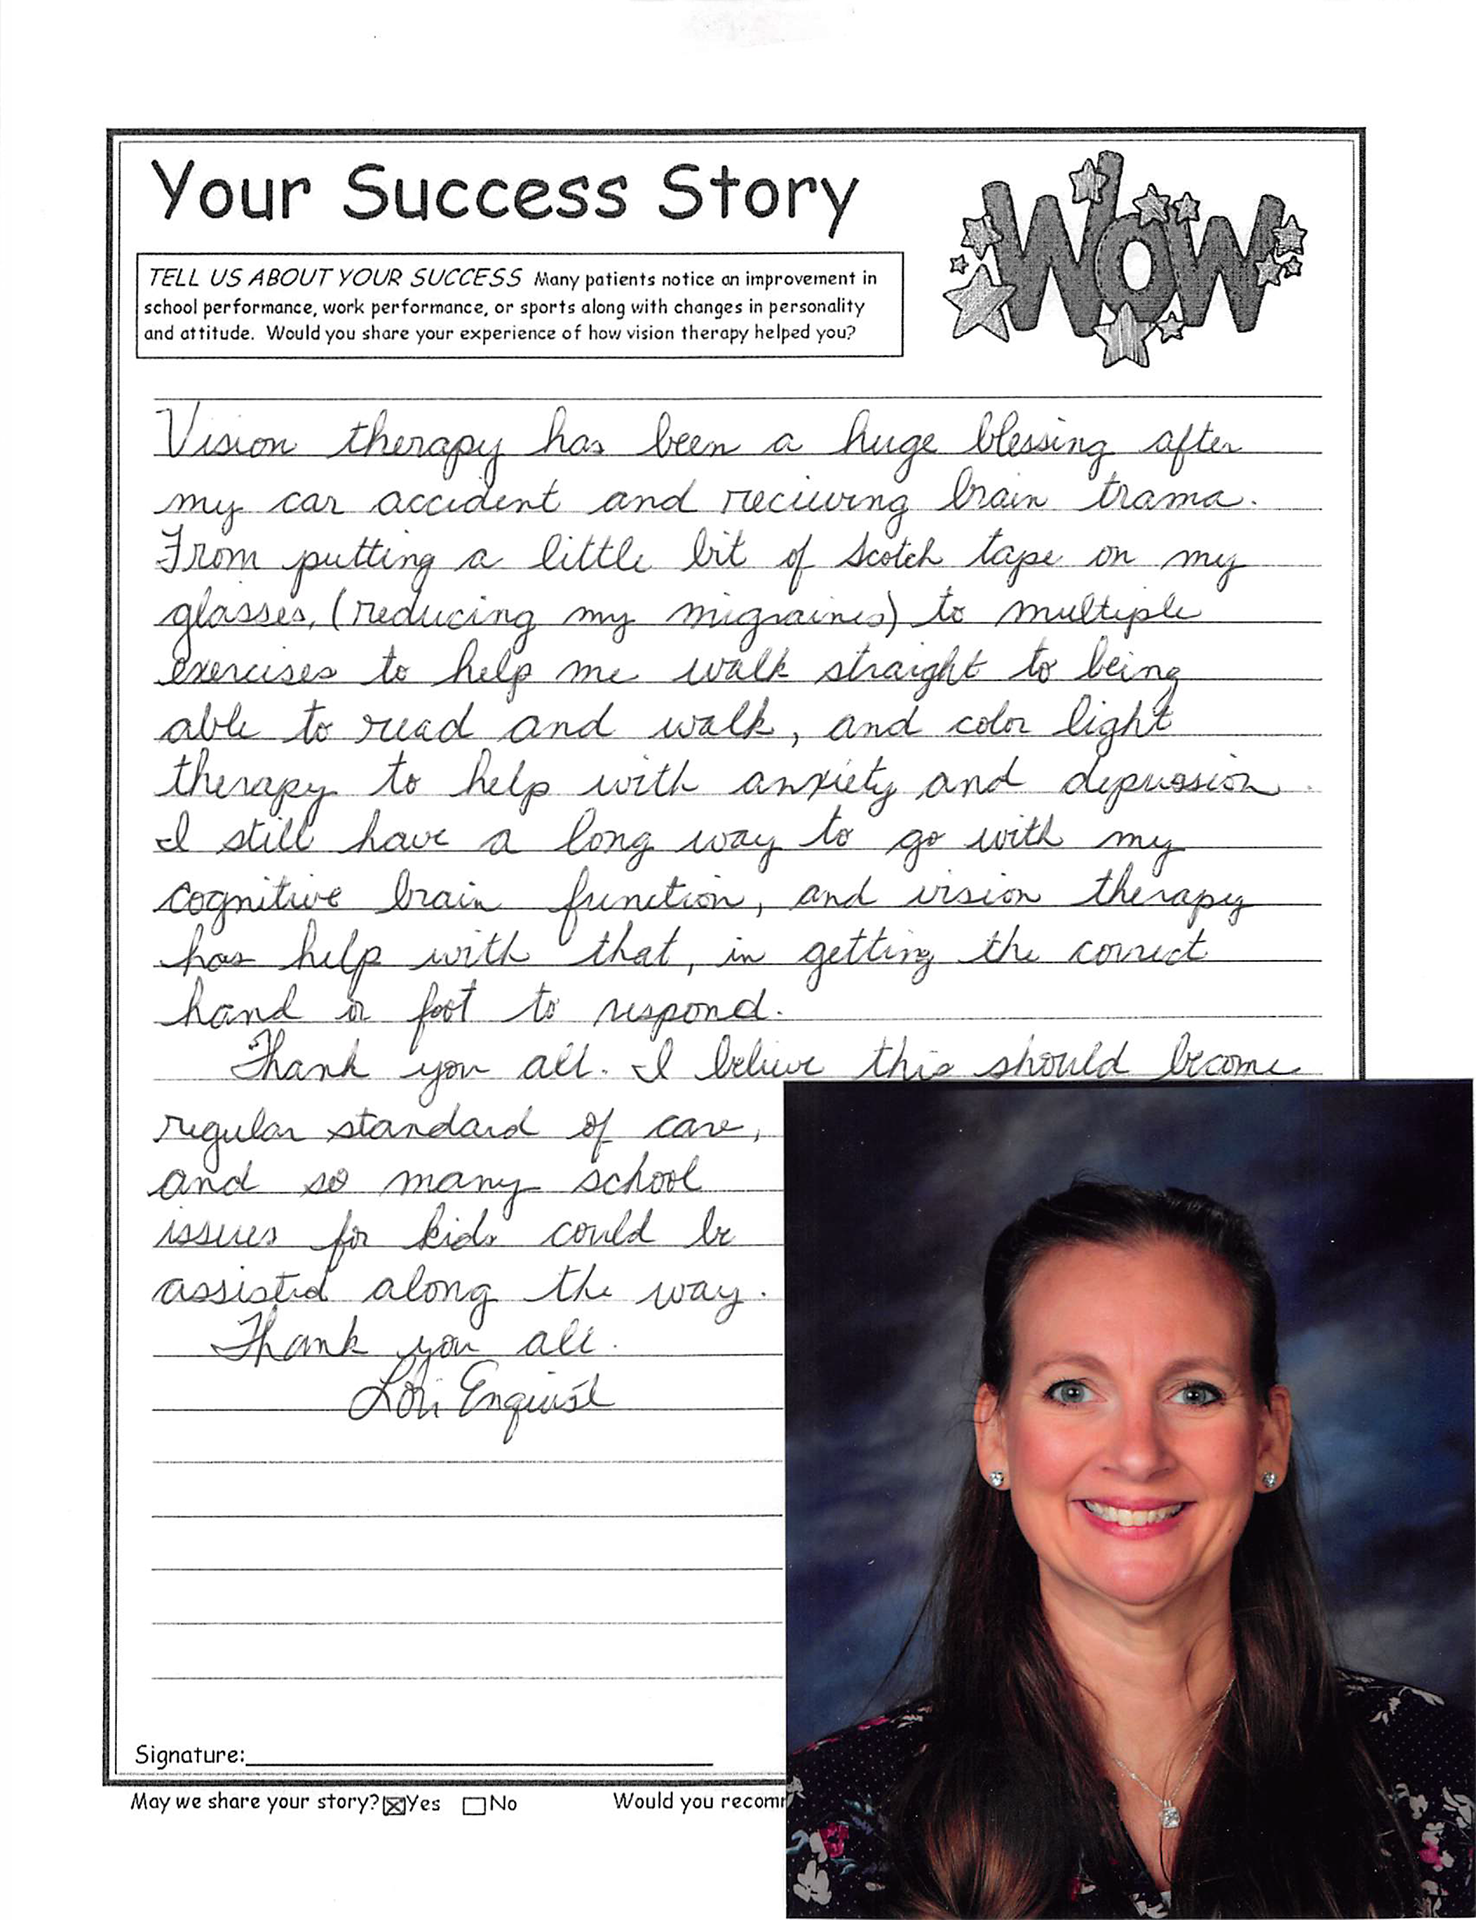 Your Success Story
WOW
TELL US ABOUT YOUR SUCCESS Many patients notice an improvement in
school performance, work performance, or sports along with changes in personality
and attitude. Would you share your experience of how vision therapy helped you?
Vision therapy has been a huge blessing after
my car accident and reciewing brain trama.
From putting a little bit of scotch tape on my
glasses, (reducing my migraines) to multiple
exercises to help me walk straight to being
able to read and walk, and color light
therapy to help with anxiety and depression.
I still have a long way to go with my
cognitive brain function, and vision therapy
has help with that, in getting the correct
hand or foot to respond.
Thank you all. I believe this should become
regular standard of care,
and so many school
issues for kids could be
assisted along the way.
Thank you all.
Lori Enquist
Signature:
May we share your story? ☒Yes ☐No Would you recomm